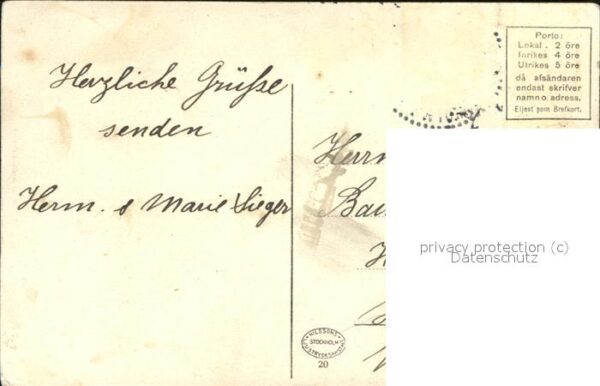 Herzliche Grüße
senden
Herm. & Marie Sieger
Porto:
Lokal. 2 öre
Inrikes 4 öre
Utrikes 5 öre
då afsändaren
endast skrifver
namn o. adress.
Eljest som Brefkort.
Herrn
privacy protection (c)
Datenschutz
NILSSONS
STOCKHOLM
LJUSTRYCKSANSTALT
20